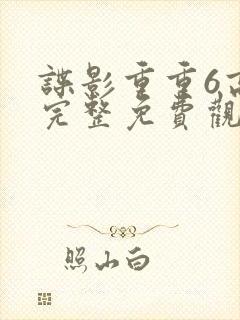 諜影重重6高
完整免費觀
照山白